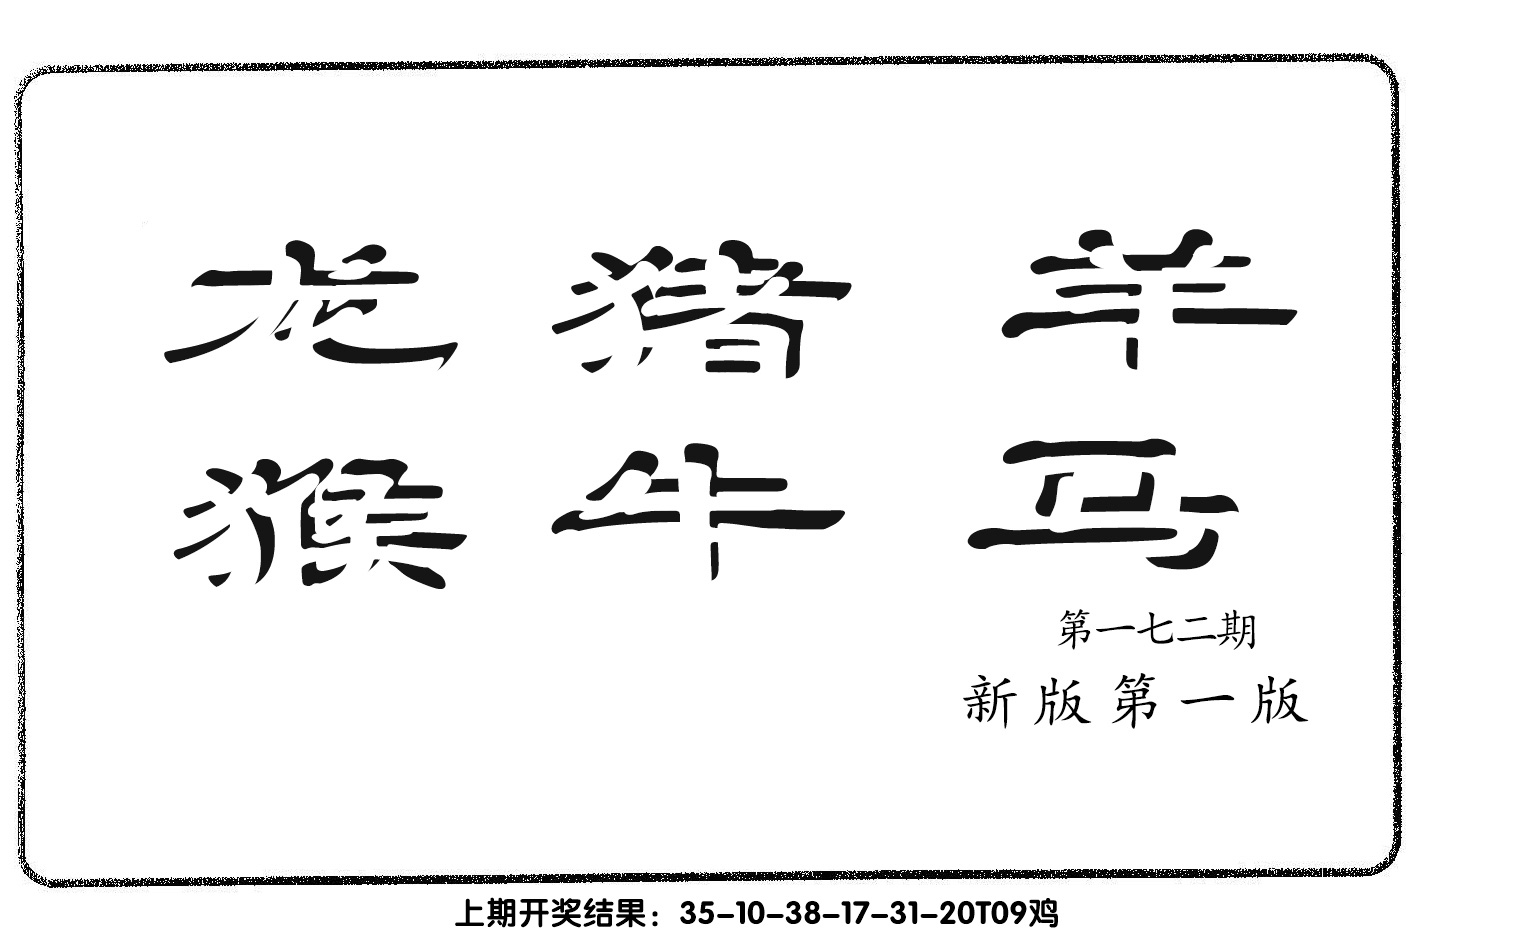 龙 猪 羊
猴 牛 马
第一七二期
新版第一版
上期开奖结果：35-10-38-17-31-20T09鸡